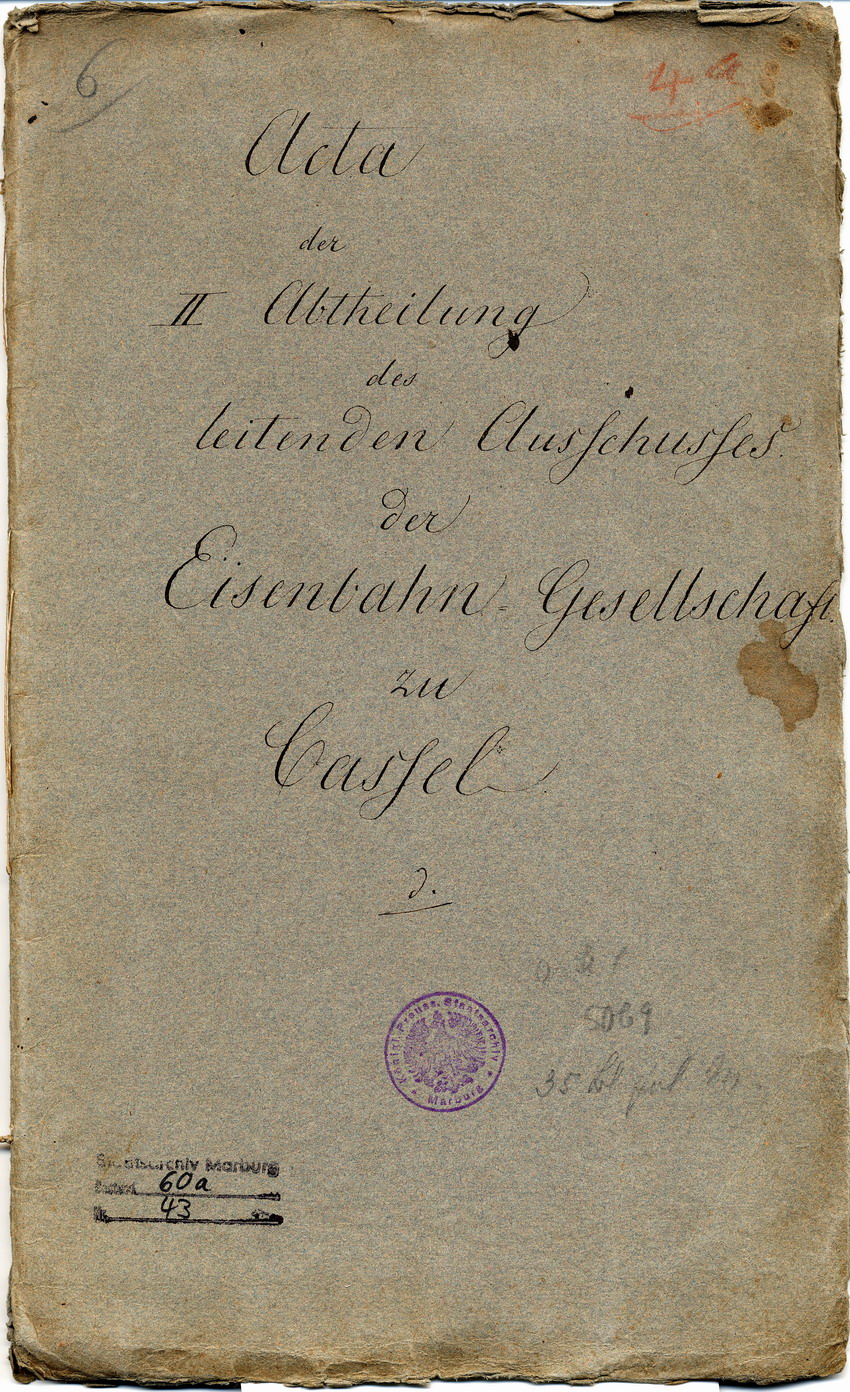 6
4
Acta
der
II Abtheilung
des
leitenden Ausschusses.
der
Eisenbahn-Gesellschaft.
zu
Cassel
d.
Königl. Preuss. Staatsarchiv
* Marburg *
35
Staatsarchiv Marburg
Bestand 60a
Nr. 43